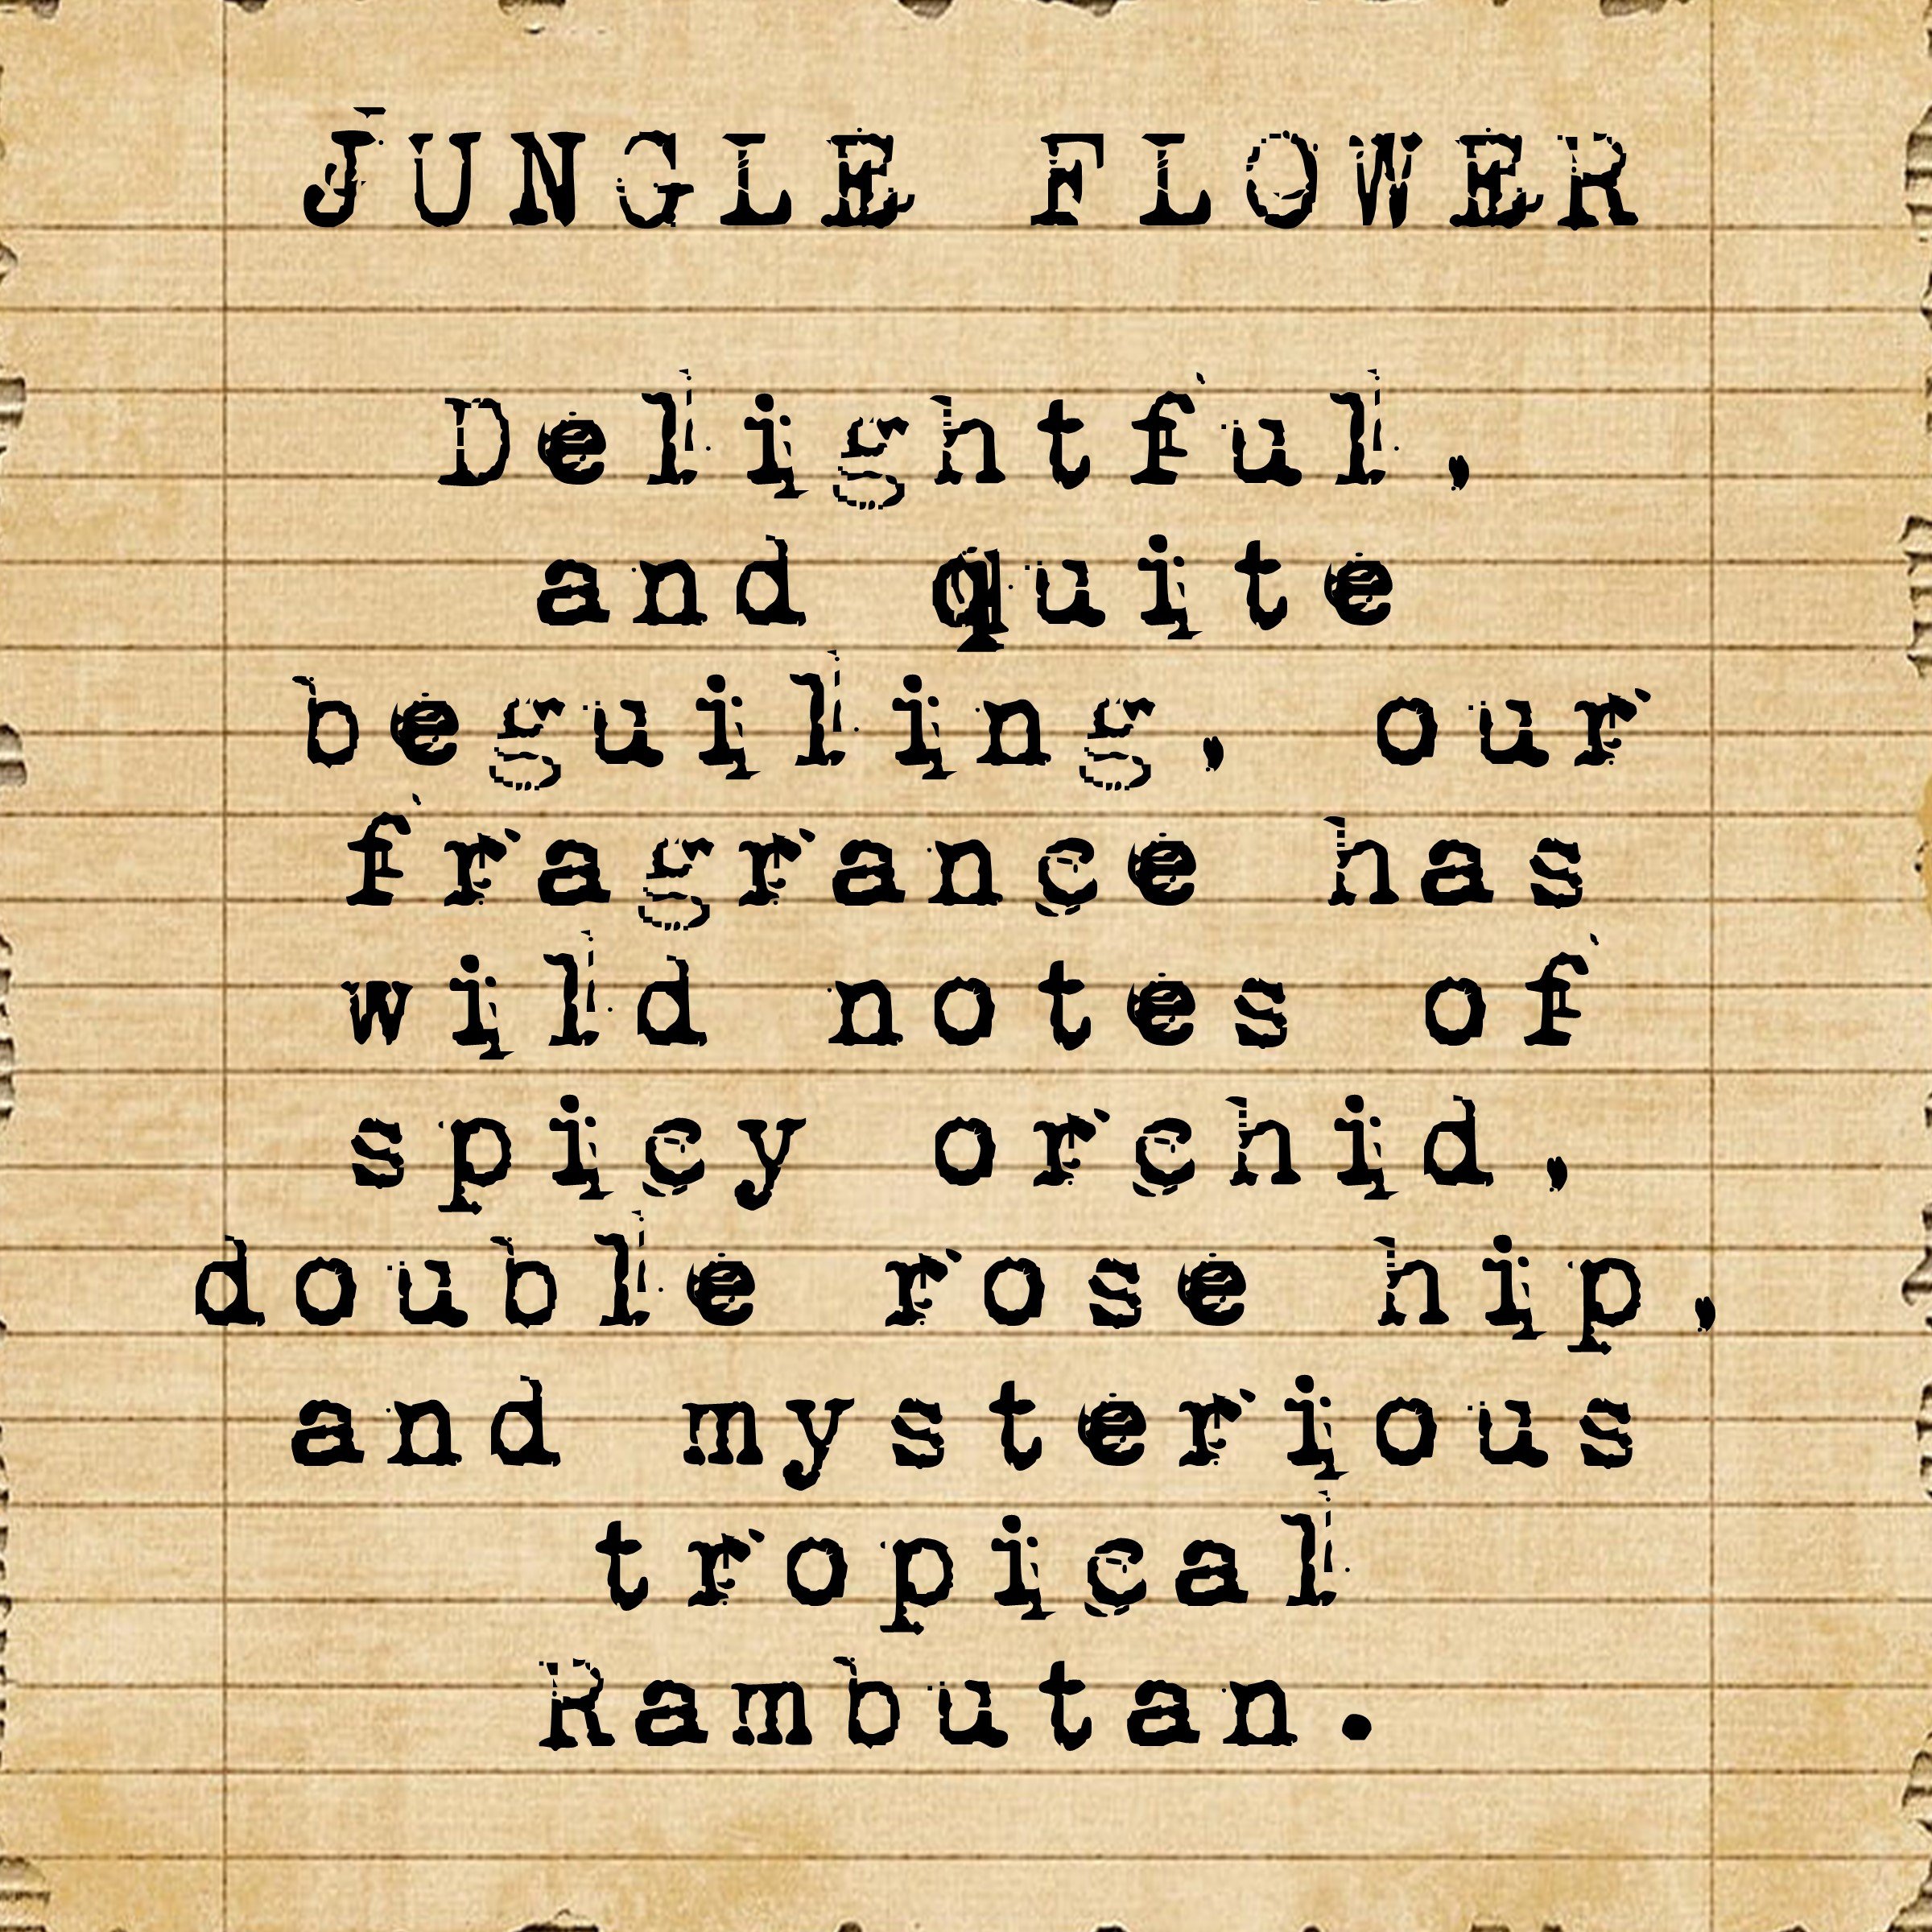 JUNGLE FLOWER
Delightful,
and quite
beguiling, our
fragrance has
wild notes of
spicy orchid,
double rose hip,
and mysterious
tropical
Rambutan.